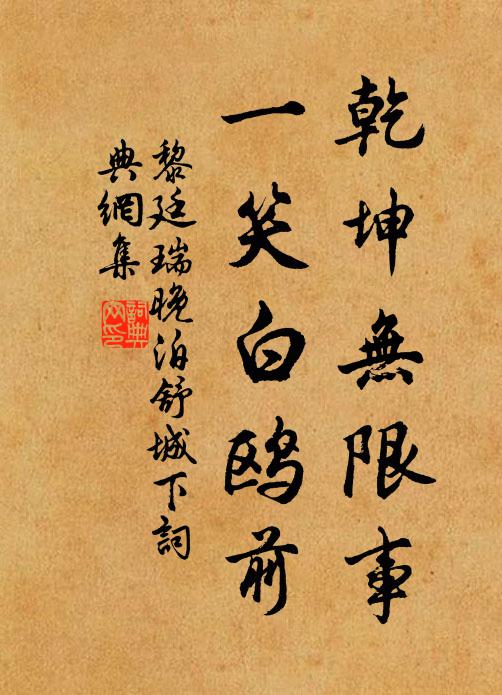 乾坤無限事
一笑白鸥前
黎廷瑞晚泊舒城下詞
典網集
詞典
网印